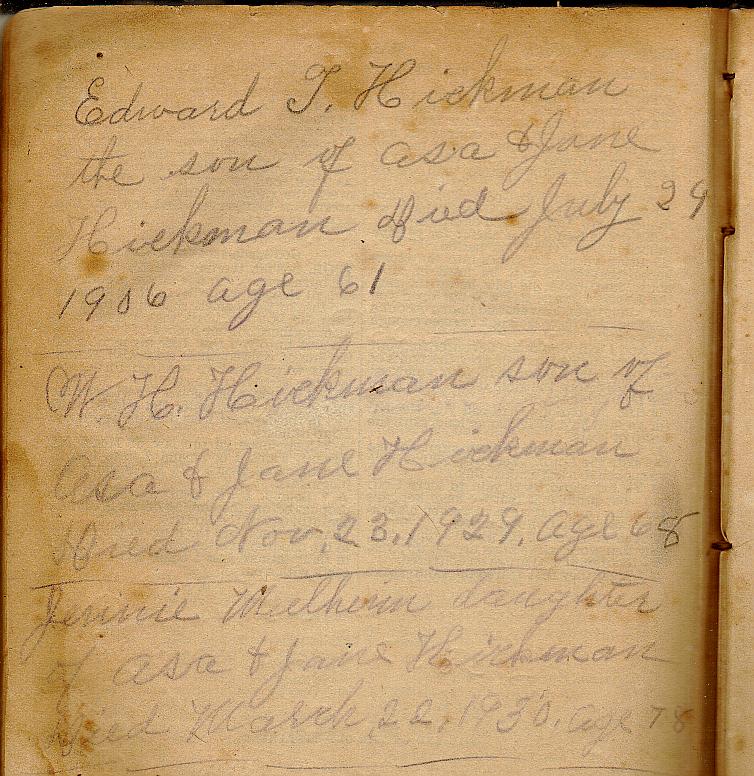 Edward T. Hickman
the son of Asa & Jane
Hickman Died July 29
1906 age 61
W. H. Hickman son of
Asa & Jane Hickman
Died Nov. 23. 1929. age 68
Jennie Melheim daughter
of Asa & Jane Hickman
Died March 22, 1930. age 78